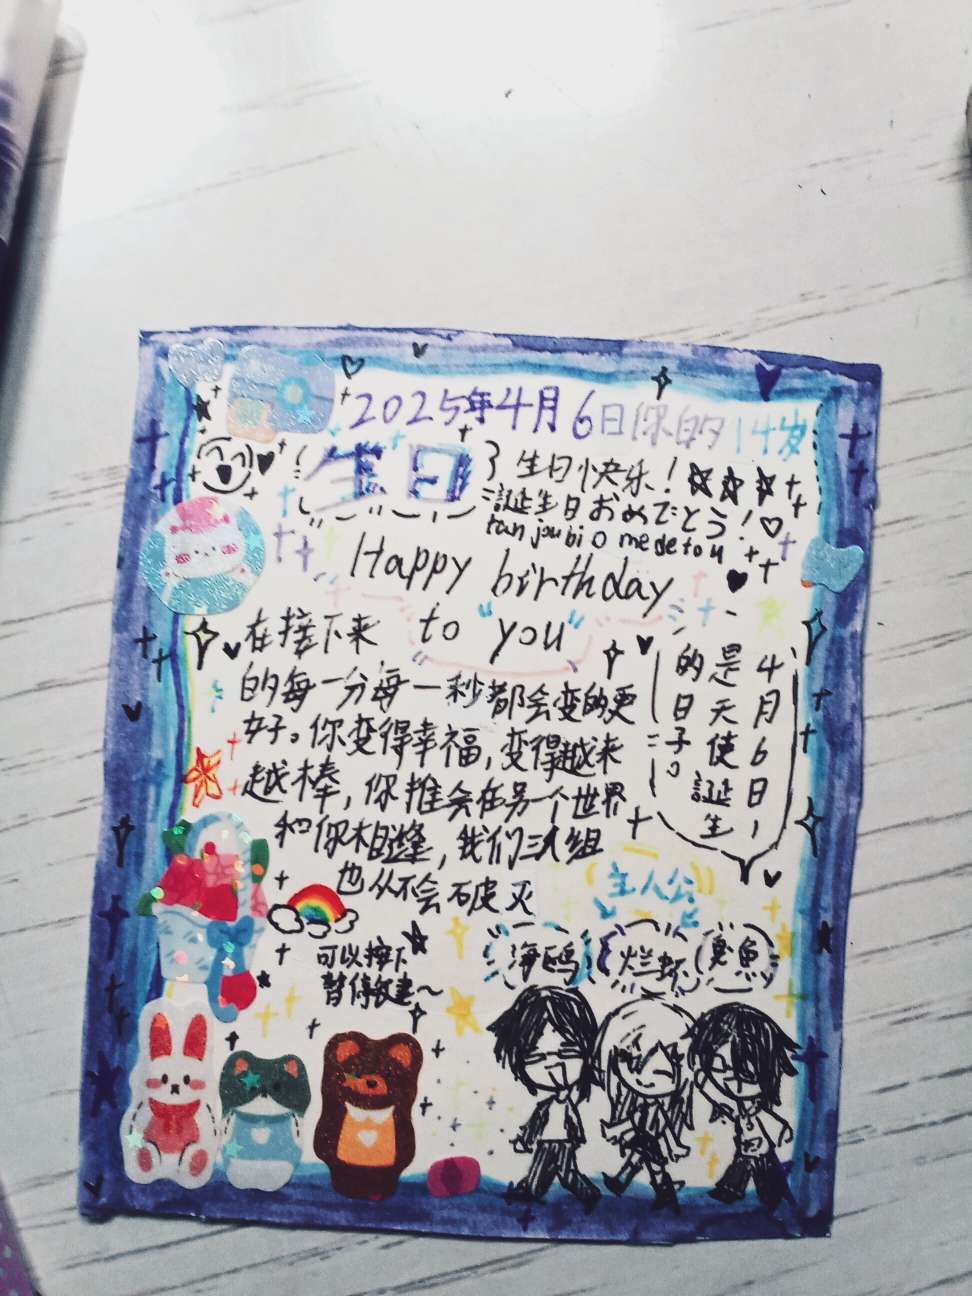 2025年4月6日你的14岁
生日
生日快乐!
誕生日おめでとう!
tan joubi o medetou
Happy birthday
to "you"
在接下来
的每一分每一秒都会变的更
好。你变得幸福,变得越来
越棒,你推会在另一个世界
和你相逢,我们三人组
也从不会破灭
4月6日,
是天使誕生
的日子。
主人公
海鸥
烂虾
臭鱼
可以按下
暂停键~